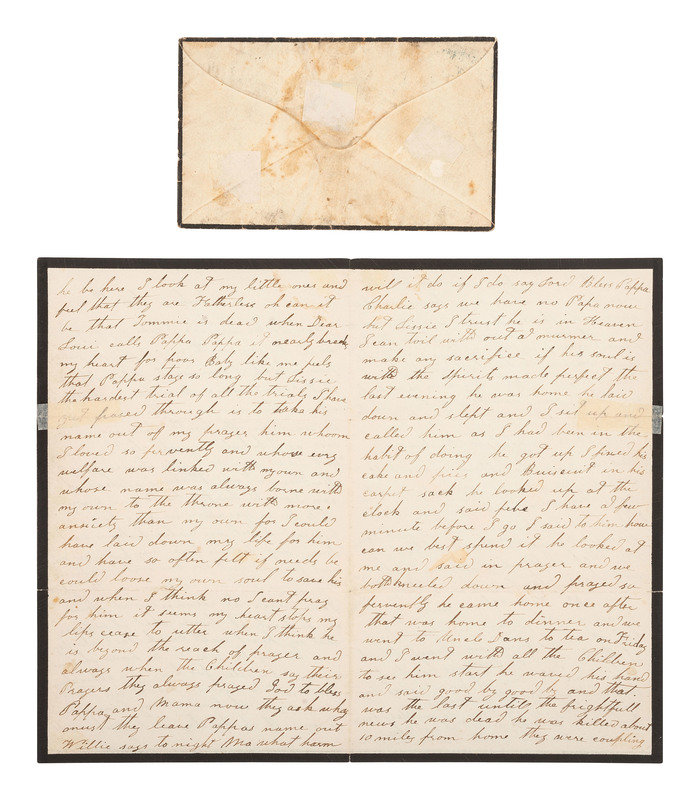 he be here I look at my little ones and
feel that they are Fatherless oh can it
be that Tommie is dead when Dear
Loui calls Pappa Pappa it nearly breaks
my heart for poor Baby like me feels
that Pappa stays so long but Lissie
the hardest trial of all the trials I have
yet passed through is to take his
name out of my prayer him whoom
I loved so fervently and whose evry
welfare was linked with my own and
whose name was always borne with
my own to the throne with more
anxiety than my own for I could
have laid down my life for him
and have so often felt if needs be
could loose my own soul to save his
and when I think no I cant pray
for him it seems my heart stops my
lips cease to utter when I think he
is beyond the reach of prayer and
always when the Children say their
Prayers they always prayed God to bless
Pappa and Mama now they ask why
must they leave Pappas name out
Willie says to night Ma what harm
will it do if I do say Lord Bless Pappa
Charlie says we have no Papa now
but Lissie I trust he is in Heaven
I can toil with out a murmer and
make any sacrifice if his soul is
with the spirits made perfect the
last evening he was home he laid
down and slept and I sit up and
called him as I had been in the
habit of doing he got up I fixed his
cake and pies and Buiscuit in his
carpet sack he looked up at the
clock and said I have a few
minute before I go I said to him how
can we best spend it he looked at
me and said in prayer and we
both kneeled down and prayed so
fervently he came home once after
that was home to dinner and we
went to Uncle Dans to tea on Friday
and I went with all the Children
to see him start he waved his hand
and said good by good by and that
was the last until the frightfull
news he was dead he was killed about
10 miles from home they were coupling